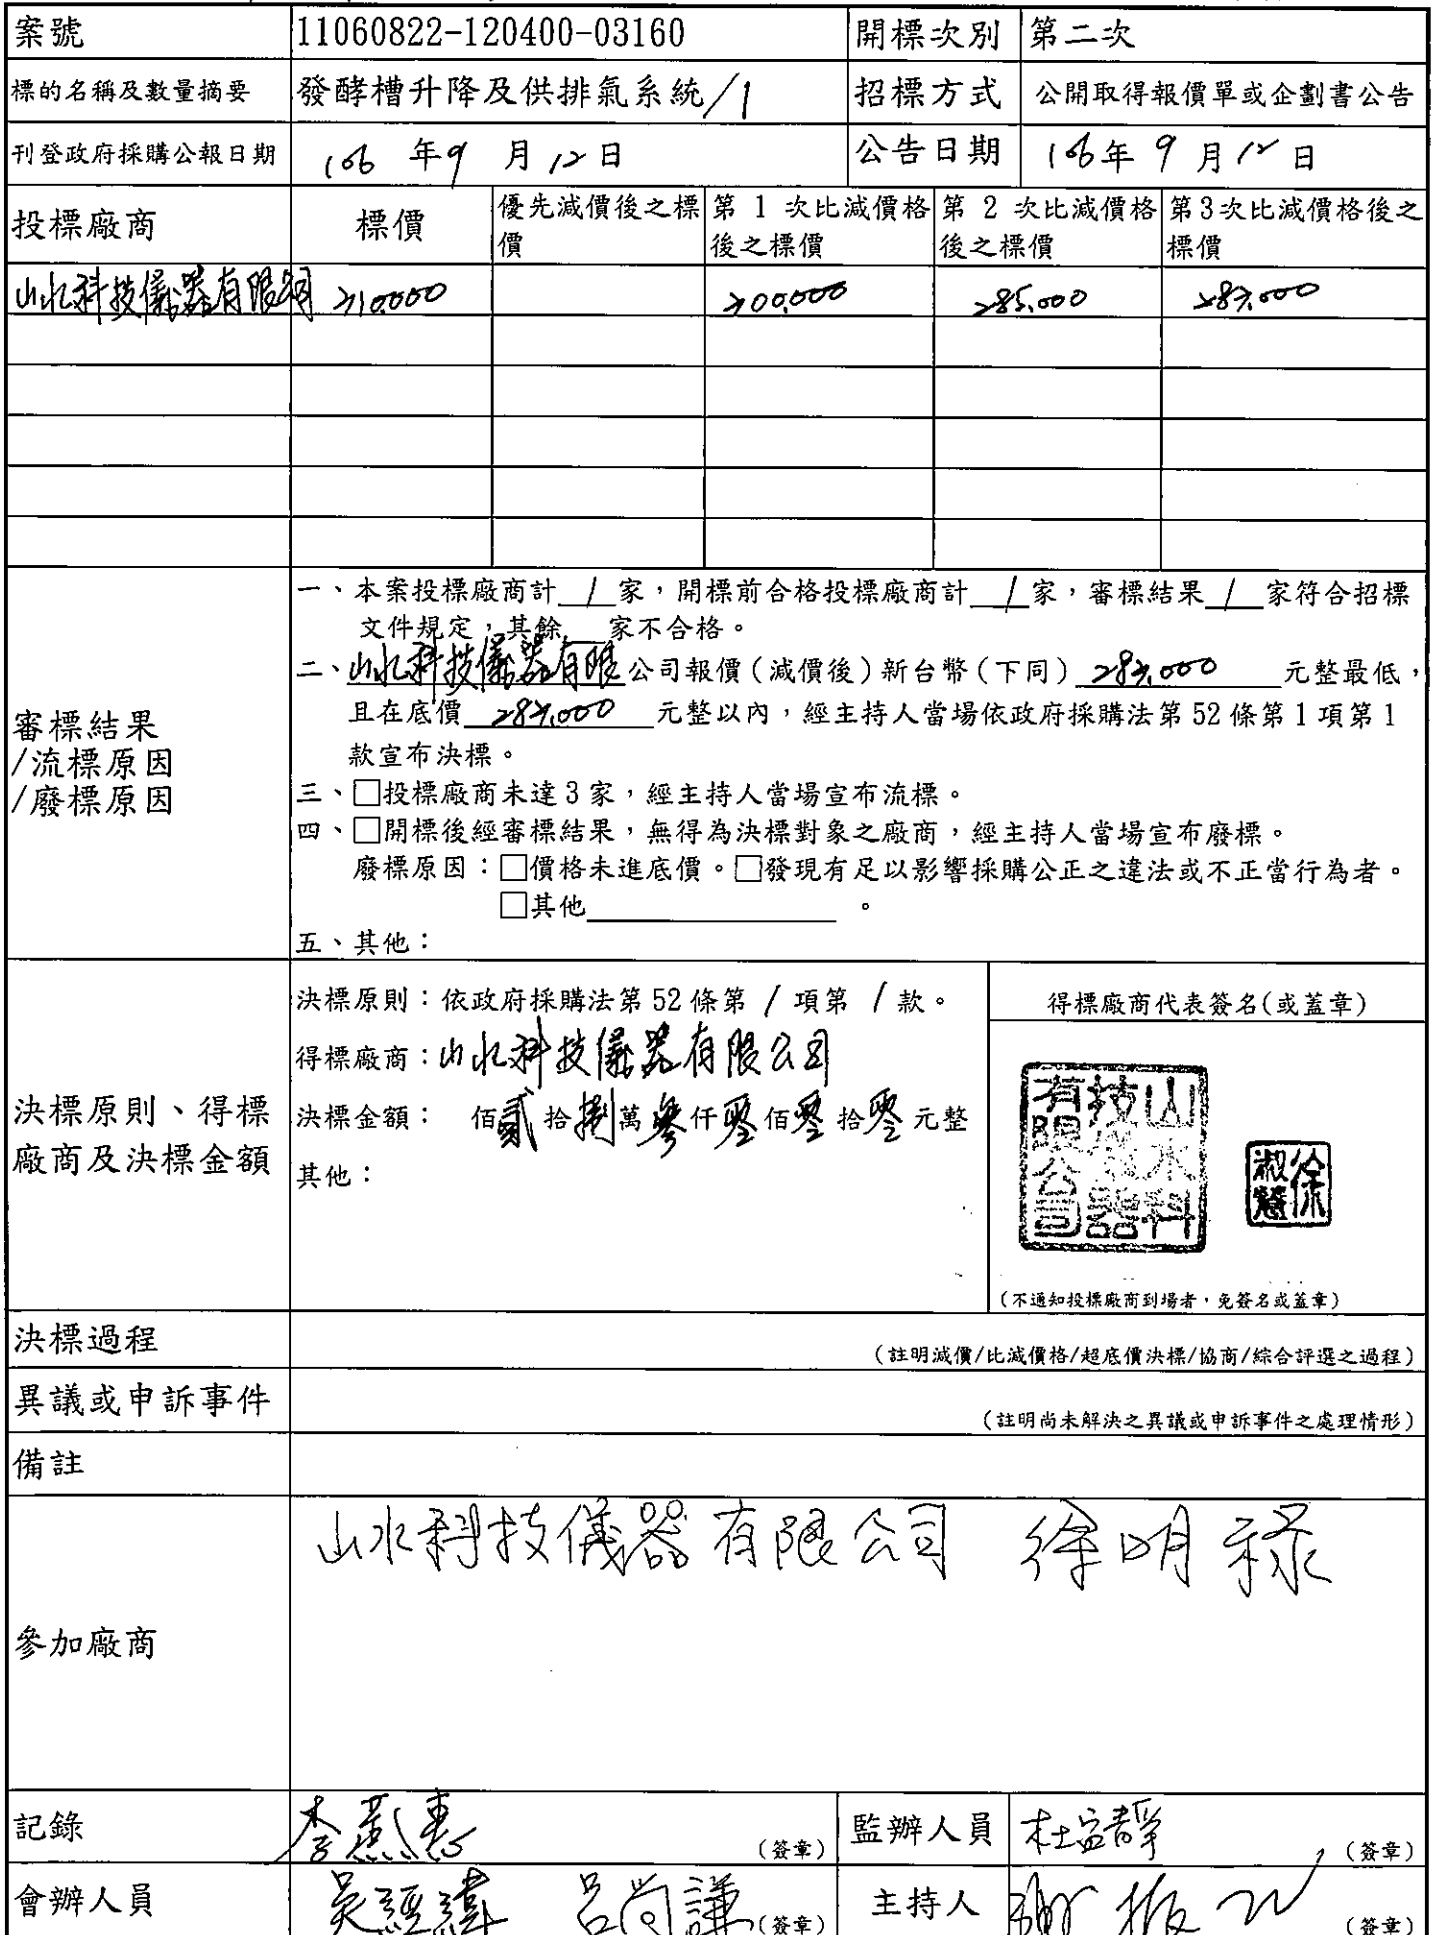 案號 11060822-120400-03160 開標次別 第二次
標的名稱及數量摘要 發酵槽升降及供排氣系統/1 招標方式 公開取得報價單或企劃書公告
刊登政府採購公報日期 106年9月12日 公告日期 106年9月12日
投標廠商 標價 優先減價後之標價 第 1 次比減價格後之標價 第 2 次比減價格後之標價 第3次比減價格後之標價
山水科技儀器有限公司 310,000 300,000 285,000 283,000
審標結果
/流標原因
/廢標原因
一、本案投標廠商計 1 家,開標前合格投標廠商計 1 家,審標結果 1 家符合招標
文件規定,其餘 家不合格。
二、山水科技儀器有限公司報價(減價後)新台幣(下同) 283,000 元整最低,
且在底價 元整以內,經主持人當場依政府採購法第 52 條第 1 項第 1
款宣布決標。
三、□投標廠商未達 3 家,經主持人當場宣布流標。
四、□開標後經審標結果,無得為決標對象之廠商,經主持人當場宣布廢標。
廢標原因:□價格未進底價。□發現有足以影響採購公正之違法或不正當行為者。
□其他 。
五、其他:
決標原則、得標
廠商及決標金額
決標原則:依政府採購法第 52 條第 1 項第 1 款。
得標廠商:山水科技儀器有限公司
決標金額: 佰貳拾捌萬參仟零佰零拾零元整
其他:
得標廠商代表簽名(或蓋章)
山水科技儀器有限公司
徐淑慧
(不通知投標廠商到場者,免簽名或蓋章)
決標過程 (註明減價/比減價格/超底價決標/協商/綜合評選之過程)
異議或申訴事件 (註明尚未解決之異議或申訴事件之處理情形)
備註
參加廠商 山水科技儀器有限公司 徐明祿
記錄 李燕惠 (簽章) 監辦人員 (簽章)
會辦人員 吳經緯 呂尚謙 (簽章) 主持人 (簽章)